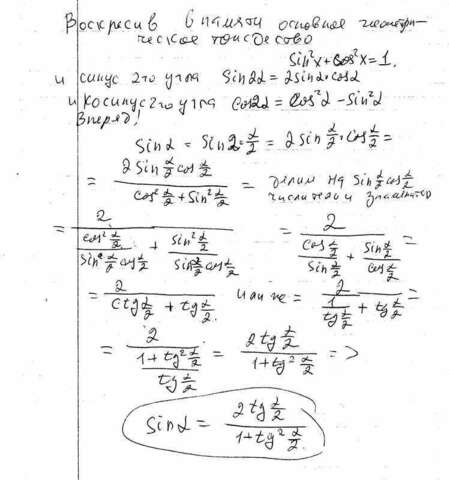 Воскресив в памяти основное геометри-
ческое тождество
Sin²x + Cos²x = 1.
и синус 2го угла Sin2α = 2sinα·cosα
и косинус 2го угла Cos2α = Cos²α - Sin²α
Вперёд!
Sinα = Sin2·α/2 = 2sin α/2 · Cos α/2 =
= (2 Sin α/2 cos α/2)/(cos² α/2 + Sin² α/2) = делим на Sin α/2 cos α/2
числитель и знаменатель
= 2/((cos² α/2)/(sin α/2 cos α/2) + (Sin² α/2)/(Sin α/2 cos α/2)) = 2/((Cos α/2)/(Sin α/2) + (Sin α/2)/(cos α/2)) =
= 2/(ctg α/2 + tg α/2) или же = 2/(1/(tg α/2) + tg α/2) =
= 2/((1+tg² α/2)/(tg α/2)) = (2tg α/2)/(1+tg² α/2) =>
Sinα = (2tg α/2)/(1+tg² α/2)